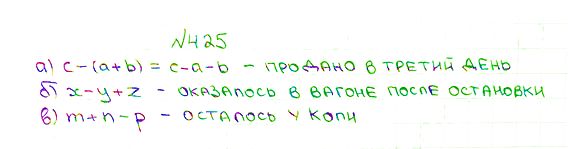 №425
а) c-(a+b) = c-a-b - ПРОДАНО В ТРЕТИЙ ДЕНЬ
б) x-y+z - ОКАЗАЛОСЬ В ВАГОНЕ ПОСЛЕ ОСТАНОВКИ
в) m+n-p - ОСТАЛОСЬ У КОЛИ